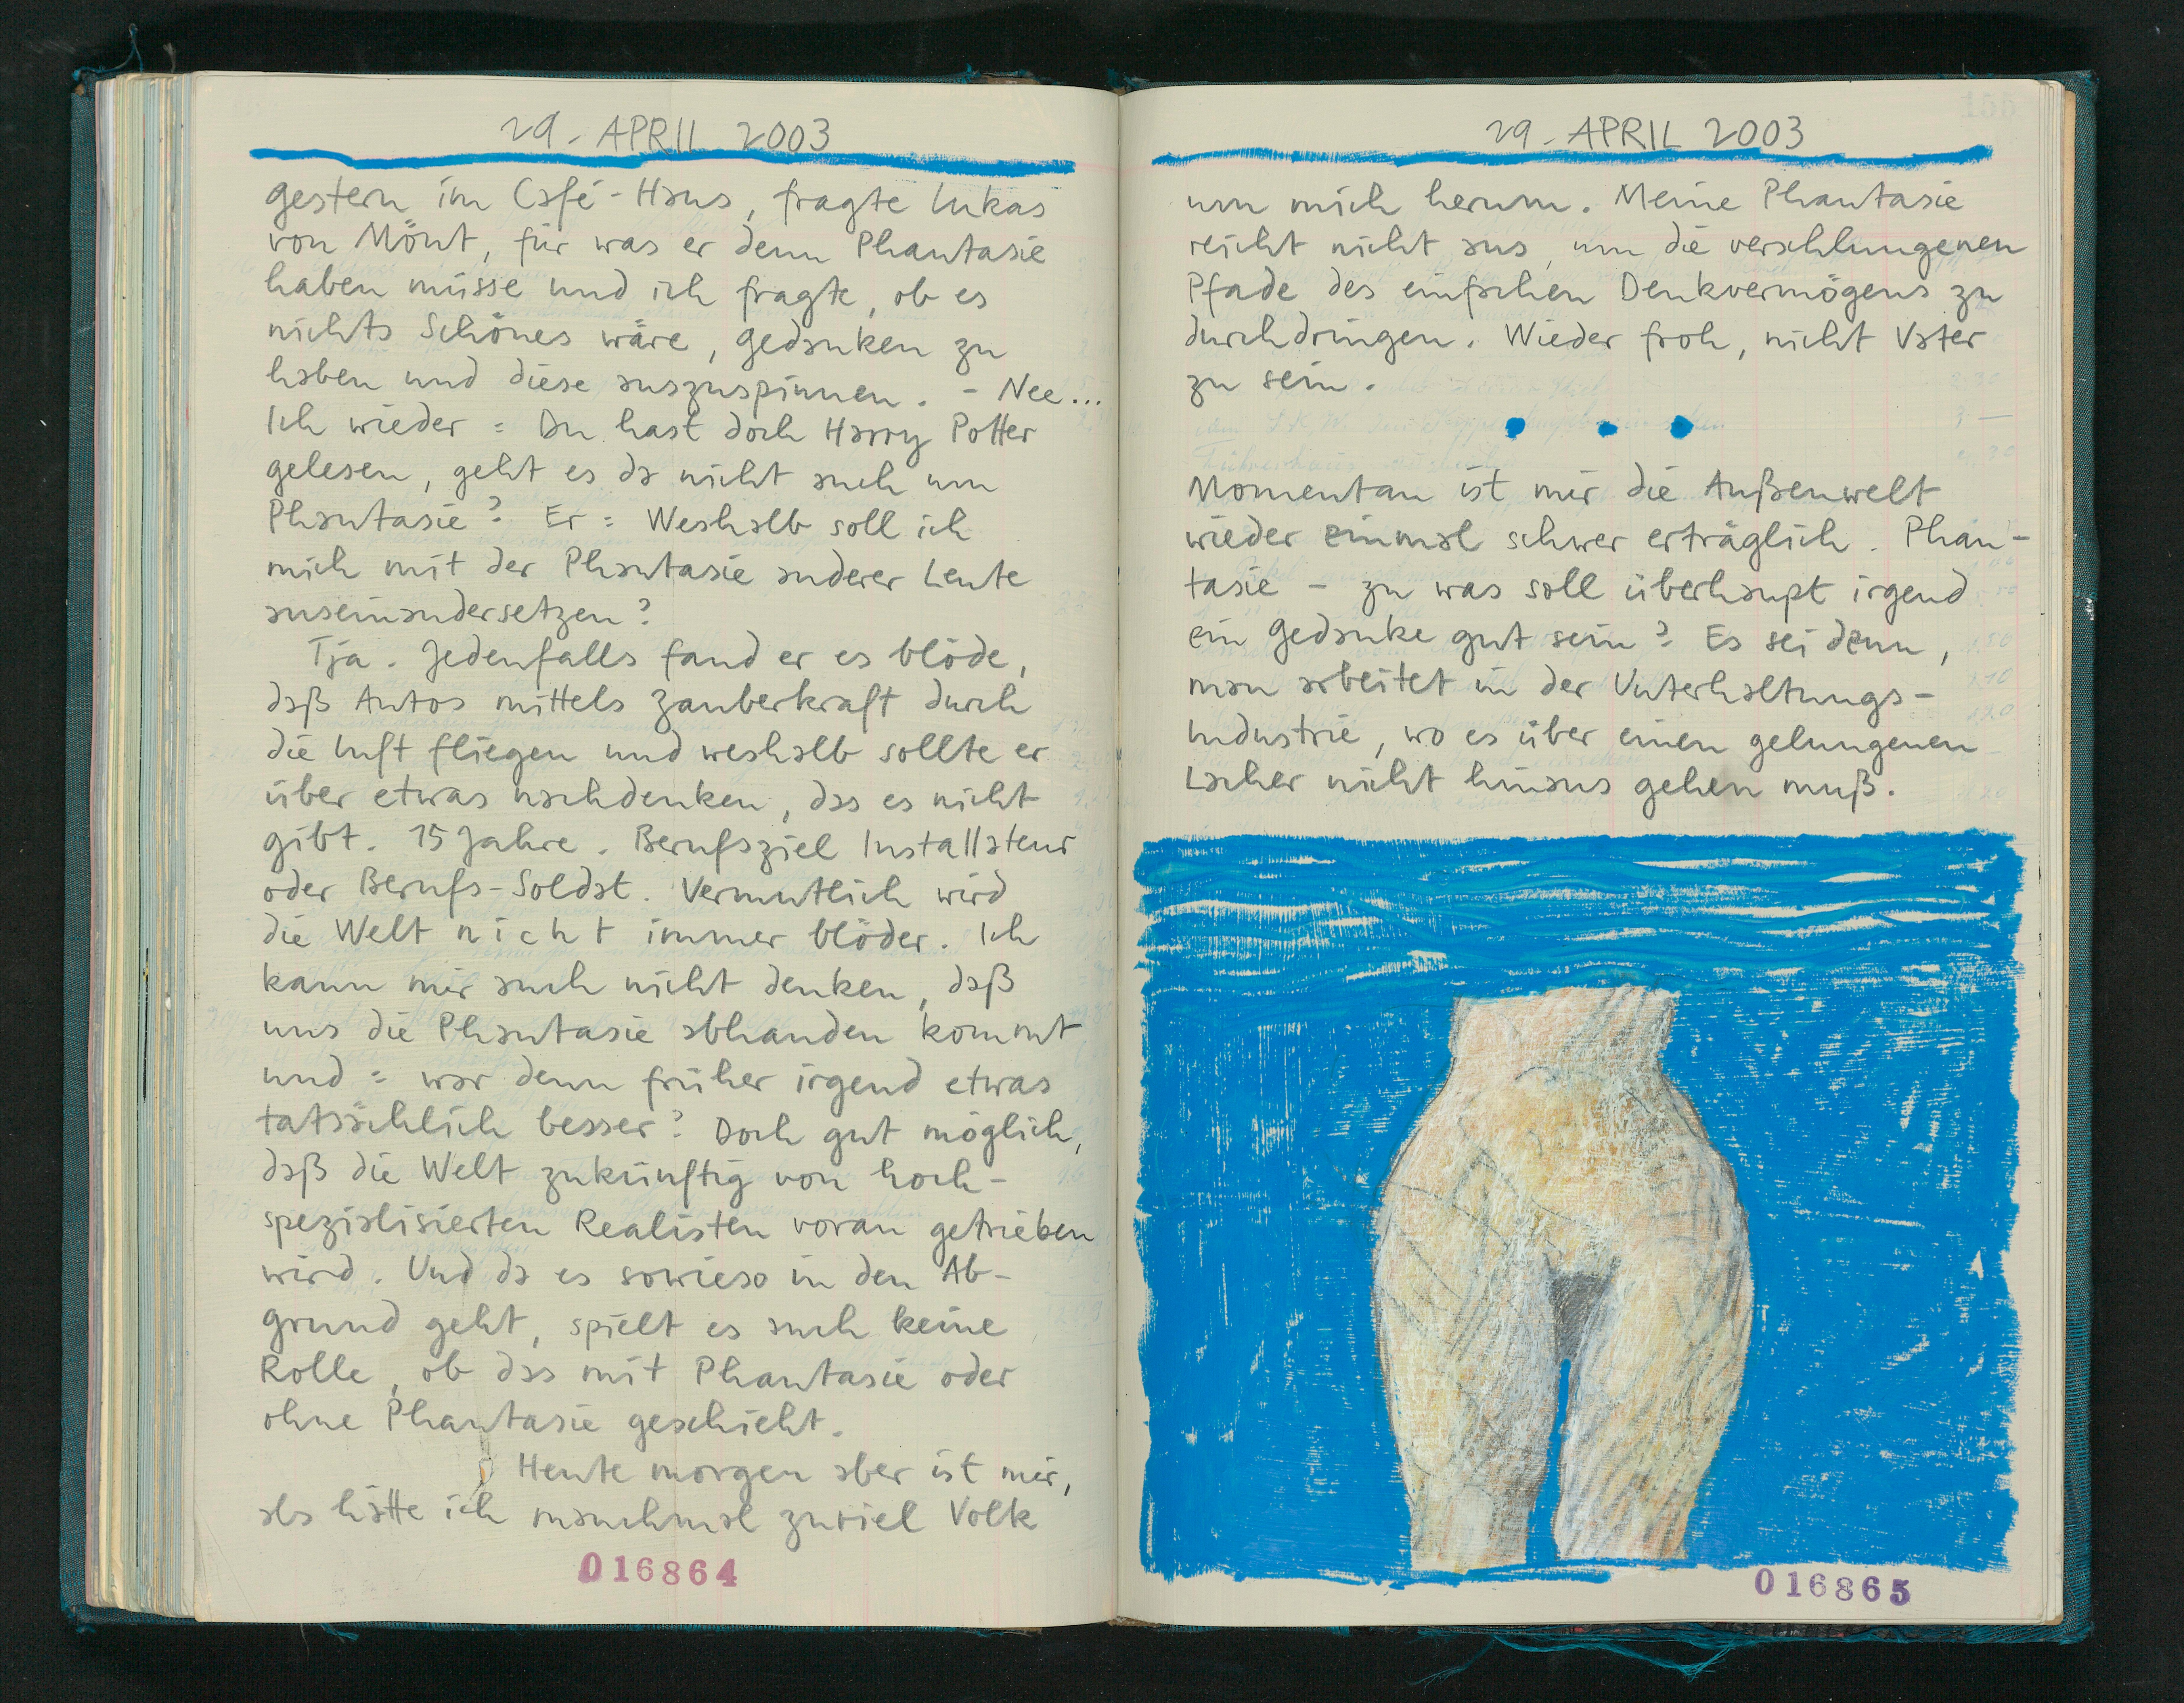 29. APRIL 2003
gestern im Café-Haus, fragte Lukas
von Mönt, für was er denn Phantasie
haben müsse und ich fragte, ob es
nichts Schönes wäre, Gedanken zu
haben und diese auszuspinnen. - Nee...
Ich wieder: Du hast doch Harry Potter
gelesen, geht es da nicht auch um
Phantasie? Er: Weshalb soll ich
mich mit der Phantasie anderer Leute
auseinandersetzen?
Tja. Jedenfalls fand er es blöde,
daß Autos mittels Zauberkraft durch
die Luft fliegen und weshalb sollte er
über etwas nachdenken, das es nicht
gibt. 15 Jahre. Berufsziel Installateur
oder Berufs-Soldat. Vermutlich wird
die Welt nicht immer blöder. Ich
kann mir auch nicht denken, daß
uns die Phantasie abhanden kommt
und: war denn früher irgend etwas
tatsächlich besser? Doch gut möglich,
daß die Welt zukünftig von hoch-
spezialisierten Realisten voran getrieben
wird. Und da es sowieso in den Ab-
grund geht, spielt es auch keine
Rolle, ob das mit Phantasie oder
ohne Phantasie geschieht.
Heute morgen aber ist mir,
als hätte ich manchmal zuviel Volk
016864
29. APRIL 2003
um mich herum. Meine Phantasie
reicht nicht aus, um die verschlungenen
Pfade des einfachen Denkvermögens zu
durchdringen. Wieder froh, nicht Vater
zu sein.
Momentan ist mir die Außenwelt
wieder einmal schwer erträglich. Phan-
tasie - zu was soll überhaupt irgend
ein Gedanke gut sein? Es sei denn,
man arbeitet in der Unterhaltungs-
Industrie, wo es über einen gelungenen
Lacher nicht hinaus gehen muß.
016865